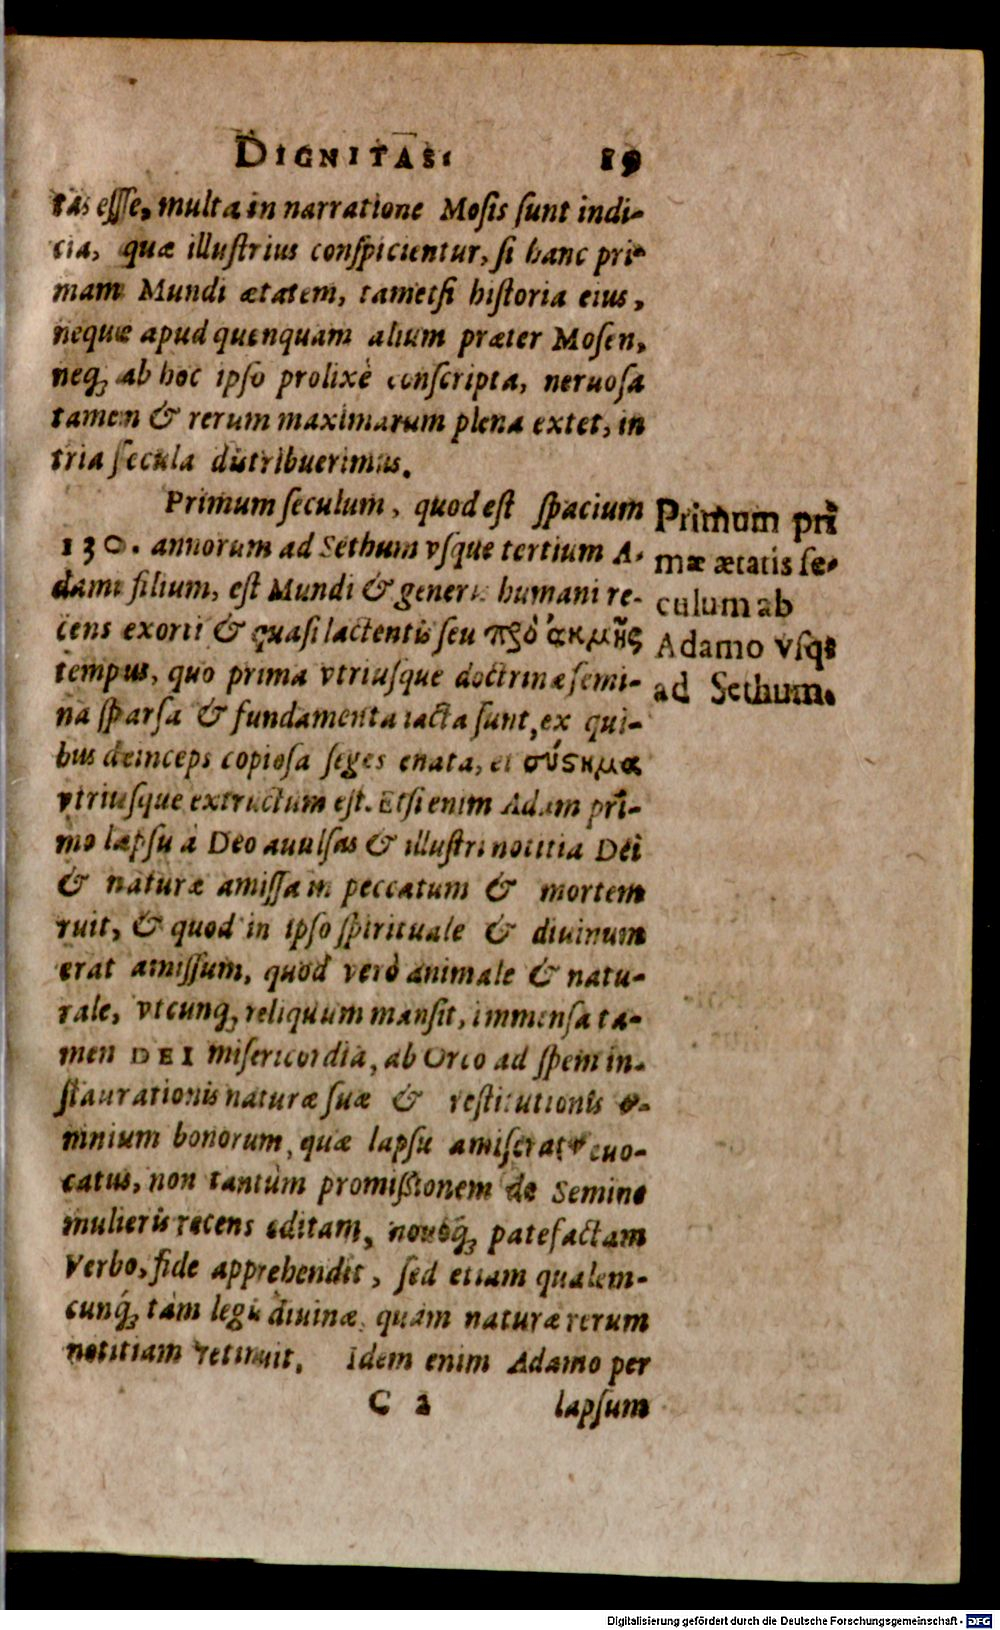 DIGNITAS. 19
tas esse, multa in narratione Mosis sunt indi-
cia, quæ illustrius conspicientur, si hanc pri-
mam Mundi ætatem, tametsi historia eius,
neque apud quenquam alium præter Mosen,
neq; ab hoc ipso prolixè conscripta, neruosa
tamen & rerum maximarum plena extet, in
tria secula distribuerimus.
Primum seculum, quod est spacium
130. annorum ad Sethum vsque tertium A-
dami filium, est Mundi & generis humani re-
cens exorti & quasi lactentis seu πρὸ ἀκμῆς
tempus, quo prima vtriusque doctrinæ semi-
na sparsa & fundamenta iacta sunt, ex qui-
bus deinceps copiosa seges enata, et σύστημα
vtriusque extructum est. Etsi enim Adam pri-
mo lapsu à Deo auulsus & illustri notitia Dei
& naturæ amissa in peccatum & mortem
ruit, & quod in ipso spirituale & diuinum
erat amissum, quod verò animale & natu-
rale, vtcunq; reliquum mansit, immensa ta-
men DEI misericordia, ab Orco ad spem in-
staurationis naturæ suæ & restitutionis o-
mnium bonorum, quæ lapsu amiserat reuo-
catus, non tantùm promissionem de Semine
mulieris recens editam, nouoq́; patefactam
Verbo, fide apprehendit, sed etiam qualem-
cunq́; tàm legis diuinæ, quàm naturæ rerum
notitiam retinuit. Idem enim Adamo per
C 2 lapsum
Primum pri
mæ ætatis se-
culum ab
Adamo vsq;
ad Sethum.
Digitalisierung gefördert durch die Deutsche Forschungsgemeinschaft - DFG